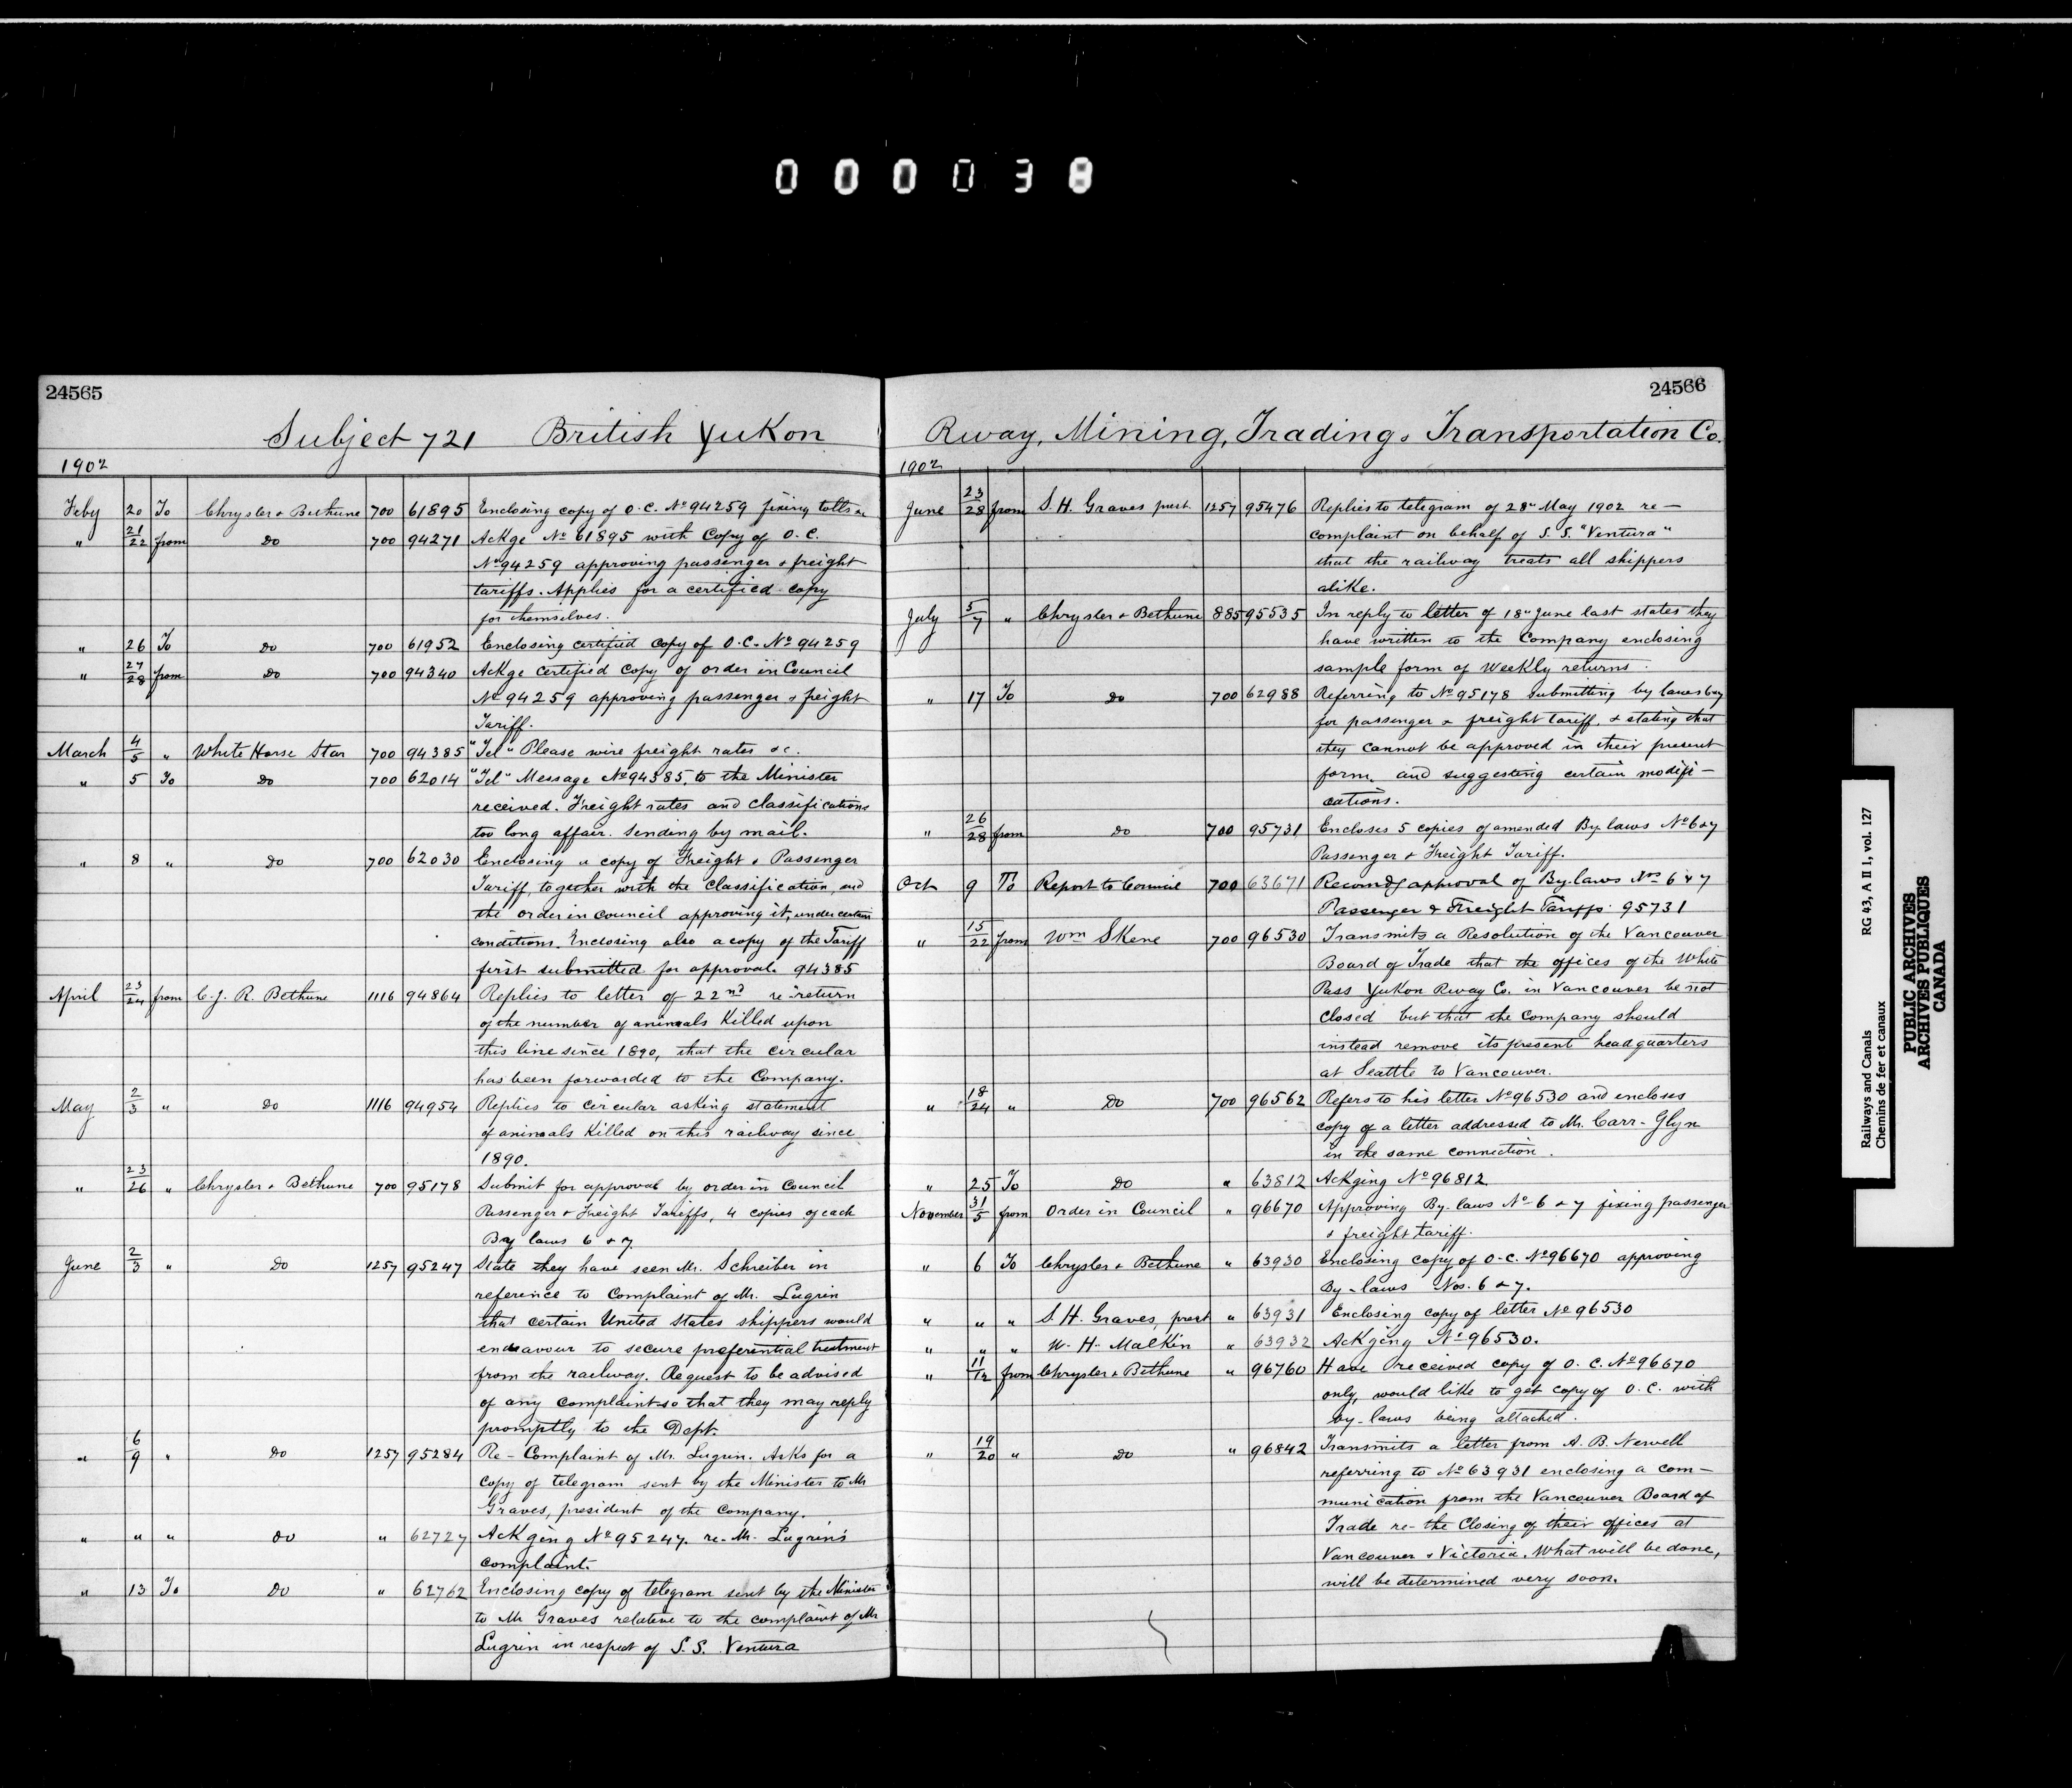 000038
24565
Subject 721 British Yukon
1902
Feby 20 To Chrysler & Bethune 700 61895 Enclosing copy of O.C. No 94259 fixing tolls &c
" 21/22 from Do 700 94271 Ackge No 61895 with Copy of O.C.
No 94259 approving passenger & freight
tariffs. Applies for a certified copy
for themselves.
" 26 To Do 700 61952 Enclosing certified copy of O.C. No 94259
" 27/28 from Do 700 94340 Ackge certified copy of order in Council
No 94259 approving passenger & freight
Tariff.
March 4/5 " White Horse Star 700 94385 "Tel" Please wire freight rates &c.
" 5 To Do 700 62014 "Tel" Message No 94385 to the Minister
received. Freight rates and classifications
too long affair. Sending by mail.
" 8 " Do 700 62030 Enclosing a copy of Freight & Passenger
Tariff, together with the classification, and
the order in council approving it, under certain
conditions. Enclosing also a copy of the Tariff
first submitted for approval. 94385
April 23/24 from C.J.R. Bethune 1116 94864 Replies to letter of 22nd re return
of the number of animals killed upon
this line since 1890, that the circular
has been forwarded to the Company.
May 2/3 " Do 1116 94954 Replies to circular asking statement
of animals killed on this railway since
1890.
" 23/26 " Chrysler & Bethune 700 95178 Submit for approval by order in Council
Passenger & Freight Tariffs, 4 copies of each
By laws 6 & 7.
June 2/3 " Do 1257 95247 State they have seen Mr. Schreiber in
reference to Complaint of Mr. Lugrin
that certain United States shippers would
endeavour to secure preferential treatment
from the railway. Request to be advised
of any complaints so that they may reply
promptly to the Dept.
" 6/9 " Do 1257 95284 Re- Complaint of Mr. Lugrin. Asks for a
copy of telegram sent by the Minister to Mr
Graves, president of the Company.
" " " Do " 62727 Ackging No 95247. re- Mr. Lugrin's
complaint.
" 13 To Do " 62762 Enclosing copy of telegram sent by the Minister
to Mr Graves relative to the complaint of Mr
Lugrin in respect of S.S. Ventura
24566
Rway, Mining, Trading & Transportation Co.
1902
June 23/28 from S.H. Graves prest. 1257 95476 Replies to telegram of 28" May 1902 re-
complaint on behalf of S.S. "Ventura"
that the railway treats all shippers
alike.
July 5/7 " Chrysler & Bethune 885 95535 In reply to letter of 18" June last states they
have written to the Company enclosing
sample form of weekly returns.
" 17 To Do 700 62988 Referring to No 95178 submitting by laws 6 & 7
for passenger & freight tariff, & stating that
they cannot be approved in their present
form, and suggesting certain modifi-
cations.
" 26/28 from Do 700 95731 Encloses 5 copies of amended By laws No 6 & 7
Passenger & Freight Tariff.
Oct 9 To Report to Council 700 63671 Recomdg approval of By-laws Nos 6 & 7
Passenger & Freight Tariffs 95731
" 15/22 from Wm Skene 700 96530 Transmits a Resolution of the Vancouver
Board of Trade that the offices of the White
Pass Yukon Rway Co. in Vancouver be not
closed but that the Company should
instead remove its present headquarters
at Seattle to Vancouver.
" 18/24 " Do 700 96562 Refers to his letter No 96530 and encloses
copy of a letter addressed to Mr. Carr-Glyn
in the same connection.
" 25 To Do " 63812 Ackging No 96812
November 31/5 from Order in Council " 96670 Approving By-laws No 6 & 7 fixing passenger
& freight tariff.
" 6 To Chrysler & Bethune " 63930 Enclosing copy of O.C. No 96670 approving
By-laws Nos. 6 & 7.
" " " S.H. Graves, prest " 63931 Enclosing copy of letter No 96530
" " " W.H. Malkin " 63932 Ackging No 96530.
" 11/12 from Chrysler & Bethune " 96760 Have received copy of O.C. No 96670
only, would like to get copy of O.C. with
by-laws being attached.
" 19/20 " Do " 96842 Transmits a letter from A.B. Newell
referring to No 63931 enclosing a com-
munication from the Vancouver Board of
Trade re- the Closing of their offices at
Vancouver & Victoria. What will be done,
will be determined very soon.
Railways and Canals RG 43, A II 1, vol. 127
Chemins de fer et canaux
PUBLIC ARCHIVES
ARCHIVES PUBLIQUES
CANADA